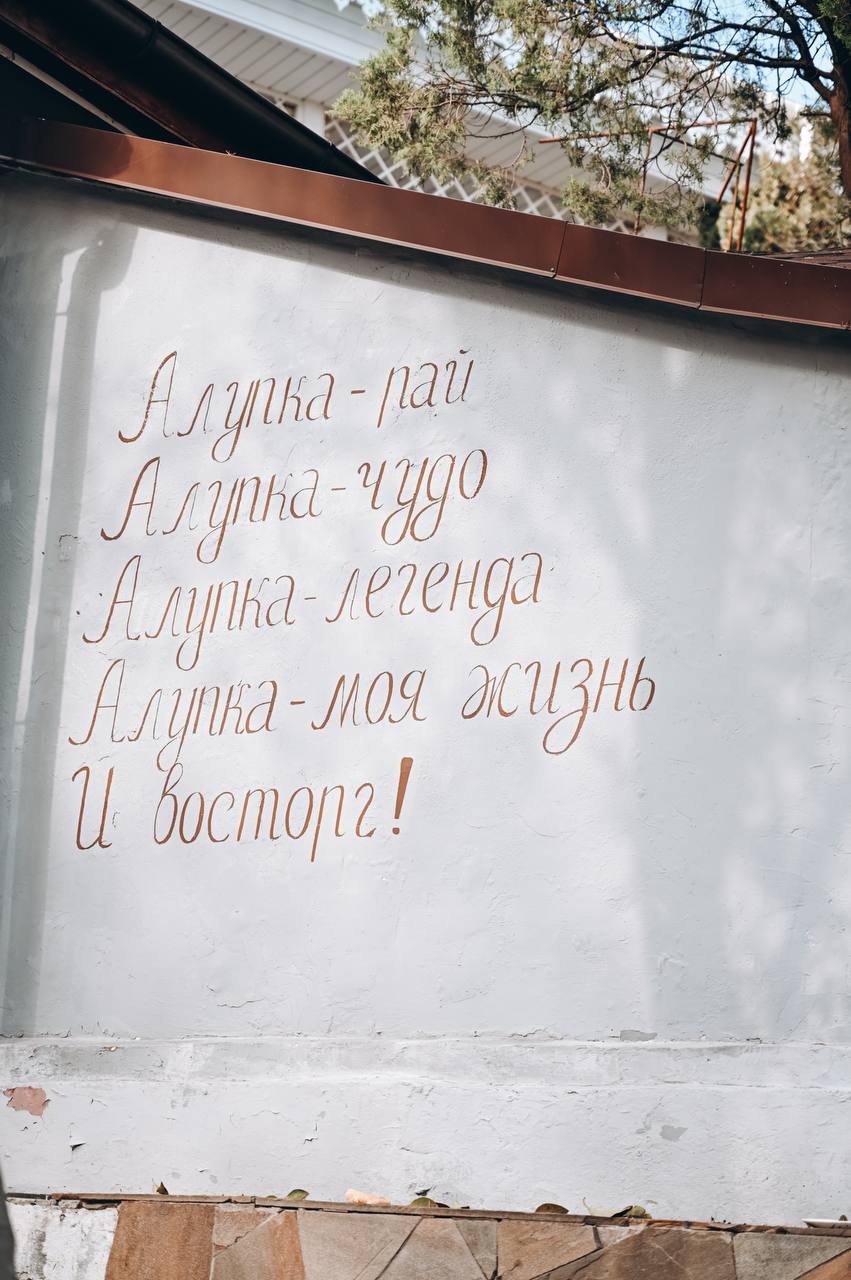 Алупка - рай
Алупка - чудо
Алупка - легенда
Алупка - моя жизнь
И восторг!